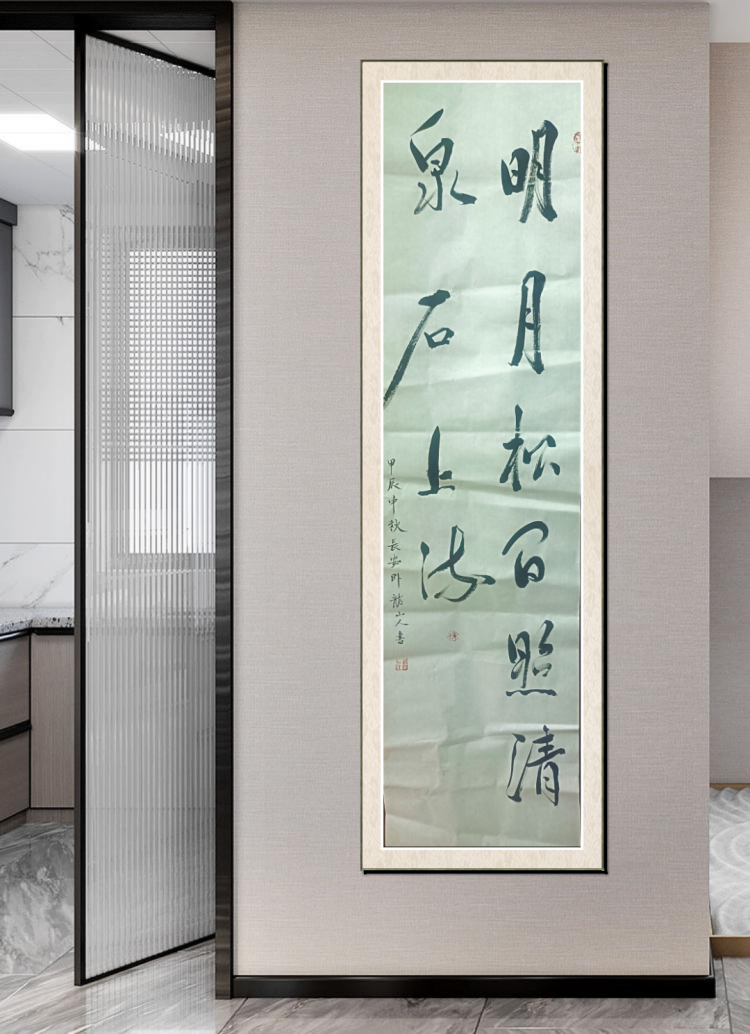 明月松间照清
泉石上流
甲辰中秋长安卧龙山人书